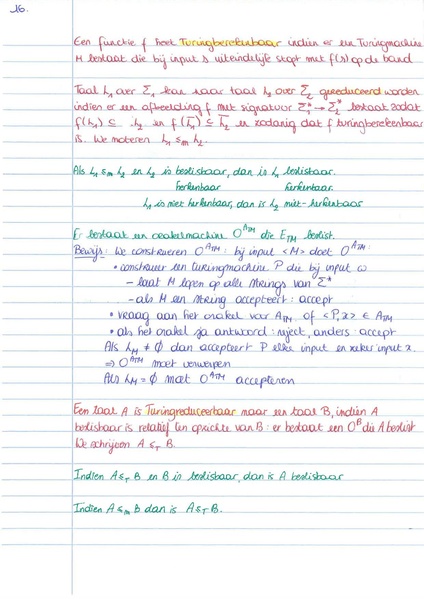 16.
Een functie f heet Turingberekenbaar indien er een Turingmachine
M bestaat die bij input s uiteindelijk stopt met f(s) op de band
Taal L₁ over Σ₁ kan naar taal L₂ over Σ₂ gereduceerd worden
indien er een afbeelding f met signatuur Σ₁* → Σ₂* bestaat zodat
f(L₁) ⊆ L₂ en f(L̅₁) ⊆ L̅₂ en zodanig dat f turingberekenbaar
is. We noteren L₁ ≤ₘ L₂.
Als L₁ ≤ₘ L₂ en L₂ is beslisbaar, dan is L₁ beslisbaar.
herkenbaar herkenbaar.
L₁ is niet herkenbaar, dan is L₂ niet-herkenbaar
Er bestaat een orakelmachine O^ATM die E_TM beslist.
Bewijs: We construeren O^ATM: bij input <M> doet O^ATM:
• construeer een turingmachine P die bij input ω
- laat M lopen op alle strings van Σ*
- als M een string accepteert: accept
• vraag aan het orakel voor A_TM of <P,x> ∈ A_TM
• als het orakel ja antwoord: reject, anders: accept
Als L_M ≠ ∅ dan accepteert P elke input en zeker input x.
⇒ O^ATM moet verwerpen
Als L_M = ∅ moet O^ATM accepteren
Een taal A is Turingreduceerbaar naar een taal B, indien A
beslisbaar is relatief ten opzichte van B: er bestaat een O^B die A beslist
We schrijven A ≤_T B.
Indien A ≤_T B en B is beslisbaar, dan is A beslisbaar
Indien A ≤ₘ B dan is A ≤_T B.